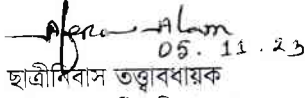 Alam
05. 11. 23
ছাত্রীনিবাস তত্ত্বাবধায়ক